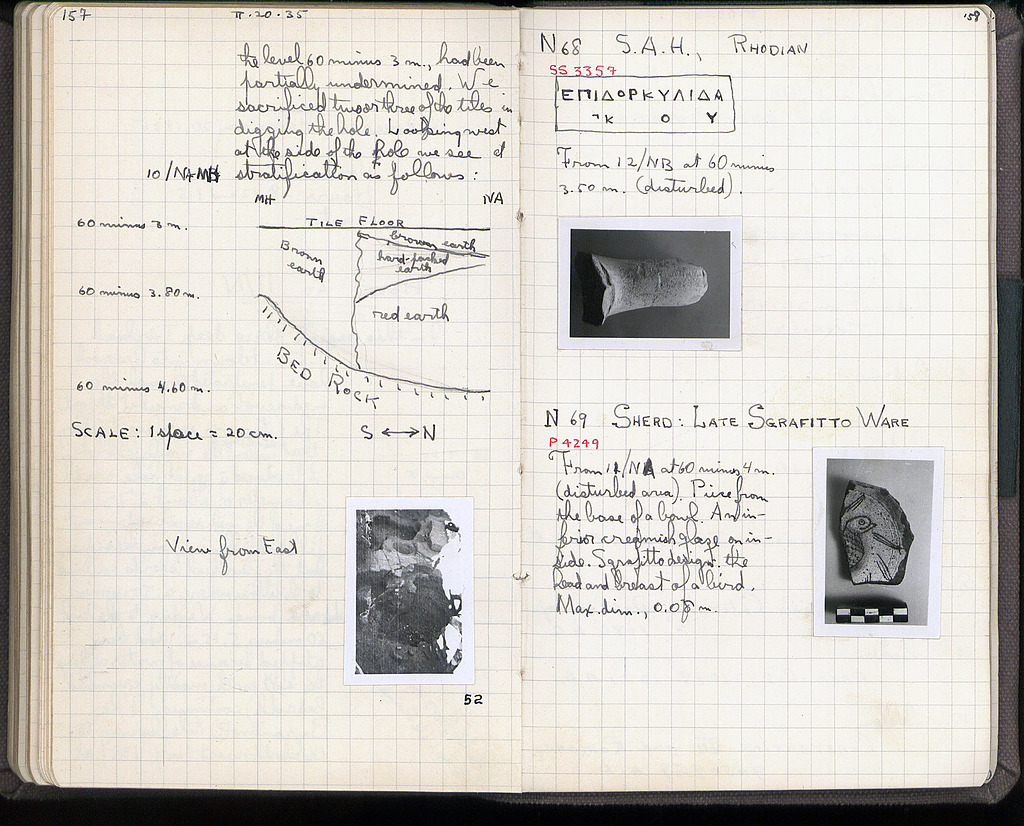 157
II·20·35
the level 60 minus 3 m., had been
partially undermined. We
sacrificed two or three of the tiles in
digging the hole. Looking west
at the side of the hole we see
10/NA-MH stratification as follows:
MH NA
60 minus 3 m.
TILE FLOOR
brown earth
Brown
earth
hard-packed
earth
60 minus 3.80 m.
red earth
BED ROCK
60 minus 4.60 m.
SCALE: 1 space = 20 cm. S ↔ N
View from East
52
158
N 68 S.A.H., RHODIAN
SS 3357
ΕΠΙΔΟΡΚΥΛΙΔΑ
¬Κ Ο Υ
From 12/NB at 60 minus
3.50 m. (disturbed).
N 69 SHERD: LATE SGRAFITTO WARE
P 4249
From 11/NA at 60 minus 4 m.
(disturbed area). Piece from
the base of a bowl. An in-
ferior creamish glaze on in-
side. Sgrafitto design: the
head and breast of a bird.
Max. dim., 0.08 m.